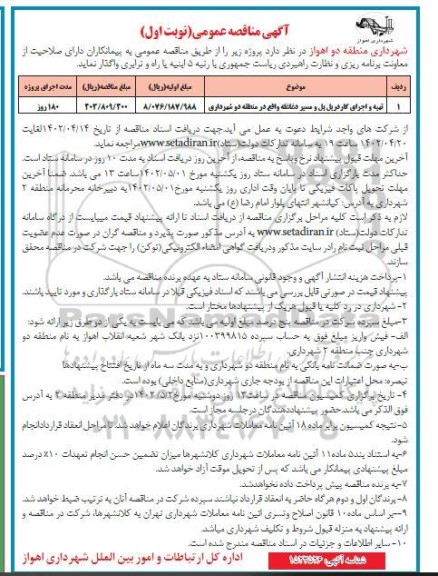 آگهی مناقصه عمومی(نوبت اول)
شهرداری اهواز
شهرداری منطقه دو اهواز در نظر دارد پروژه زیر را از طریق مناقصه عمومی به پیمانکاران دارای صلاحیت از
معاونت برنامه ریزی و نظارت راهبردی ریاست جمهوری با رتبه ۵ ابنیه یا راه و ترابری واگذار نماید.
ردیف موضوع مبلغ اولیه(ریال) مبلغ مناقصه(ریال) مدت اجرای پروژه
۱ تهیه و اجرای گاردریل پل و مسیر دغاغله واقع در منطقه دو شهرداری ۸/۰۷۶/۱۸۷/۹۸۸ ۴۰۳/۸۰۹/۴۰۰ ۱۸۰ روز
از شرکت های واجد شرایط دعوت به عمل می آید.جهت دریافت اسناد مناقصه از تاریخ ۱۴۰۲/۰۴/۱۴لغایت
۱۴۰۲/۰۴/۲۰ ساعت ۱۹ به سامانه تدارکات دولت(ستاد)www.setadiran.irمراجعه نماید.
آخرین مهلت قبول پیشنهاد نرخ و پاسخ به مناقصه،از آخرین روز دریافت اسناد به مدت ۱۰ روز در سامانه ستاد است.
حداکثر مدت بارگزاری اسناد در سامانه ستاد روز یکشنبه مورخ ۱۴۰۲/۰۵/۰۱ساعت ۱۳ می باشد. ضمنا آخرین
مهلت تحویل پاکات فیزیکی تا پایان وقت اداری روز یکشنبه مورخ۱۴۰۲/۰۵/۰۱به دبیرخانه محرمانه منطقه ۲
شهرداری به آدرس: کیانشهر انتهای بلوار امام رضا (ع) می باشد.
لازم به ذکر است کلیه مراحل برگزاری مناقصه از دریافت اسناد تا ارائه پیشنهاد قیمت میبایست از درگاه سامانه
تدارکات دولت(ستاد) www.setadiran.ir به آدرس مذکور صورت پذیرد و مناقصه گران در صورت عدم عضویت
قبلی مراحل ثبت نام رادر سایت مذکور ودریافت گواهی امضاء الکترونیکی(توکن) را جهت شرکت در مناقصه محقق
سازند.
۱-پرداخت هزینه انتشار آگهی و وجود قانونی سامانه ستاد به عهده برنده مناقصه می باشد.
پیشنهاد قیمت در صورتی قابل بررسی می باشند که اسناد فیزیکی قبلا در سامانه ستاد بارگذاری و مورد تایید باشند.
۲- شهرداری در رد کلیه یا قبول هریک از پیشنهادها مختار است.
۳-مبلغ سپرده شرکت در مناقصه پنج درصد مبلغ اولیه می باشد که می بایست به یکی از دو طرق زیر ارائه شود:
الف- فیش واریز مبلغ فوق به حساب سپرده ۱۰۰۳۹۹۸۱۵نزد بانک شهر شعبه انقلاب اهواز به نام منطقه دو
شهرداری جنب منطقه ۲ شهرداری.
ب-به صورت ضمانت نامه بانکی به نام منطقه دو شهرداری و به مدت سه ماه از تاریخ افتتاح پیشنهادها
تبصره: محل اعتبارات این مناقصه از بودجه جاری شهرداری(منابع داخلی) بوده است.
۴- تاریخ برگزاری کمیسیون مناقصه در ساعت۱۳ روز دوشنبه مورخ۱۴۰۲/۵/۰۲در دفتر مدیر منطقه ۲ به آدرس
فوق الذکر می باشد.حضور پیشنهاددهندگان در جلسه مجاز است.
۵-نتیجه کمیسیون برابر ماده ۱۸ آئین نامه معاملات شهرداری برندگان اعلام خواهد شد. تا مراحل انعقاد قراردادانجام
شود.
۶-به استناد بند۵ ماده۱۱ آئین نامه معاملات شهرداری کلانشهرها میزان تضمین حسن انجام تعهدات ۱۰٪ درصد
مبلغ پیشنهادی پیمانکار می باشد که پس از تحویل موقت آزاد خواهد شد.
۷-به برنده مناقصه پیش پرداخت داده نخواهدشد.
۸-برندگان اول و دوم هرگاه حاضر به انعقاد قرارداد نباشند سپرده شرکت در مناقصه آنان به ترتیب ضبط خواهد شد.
۹-بر اساس ماده۱۰ قانون اصلاح وتسری ائین نامه معاملات شهرداری تهران به کلانشهرها، شرکت در مناقصه
و ارائه پیشنهاد به منزله قبول شروط و تکلیف شهرداری میباشد.
۱۰-سایر اطلاعات و جزئیات در اسناد مناقصه مندرج شده است.
شناسه آگهی: ۱۵۲۲۵۲۶
اداره کل ارتباطات و امور بین الملل شهرداری اهواز